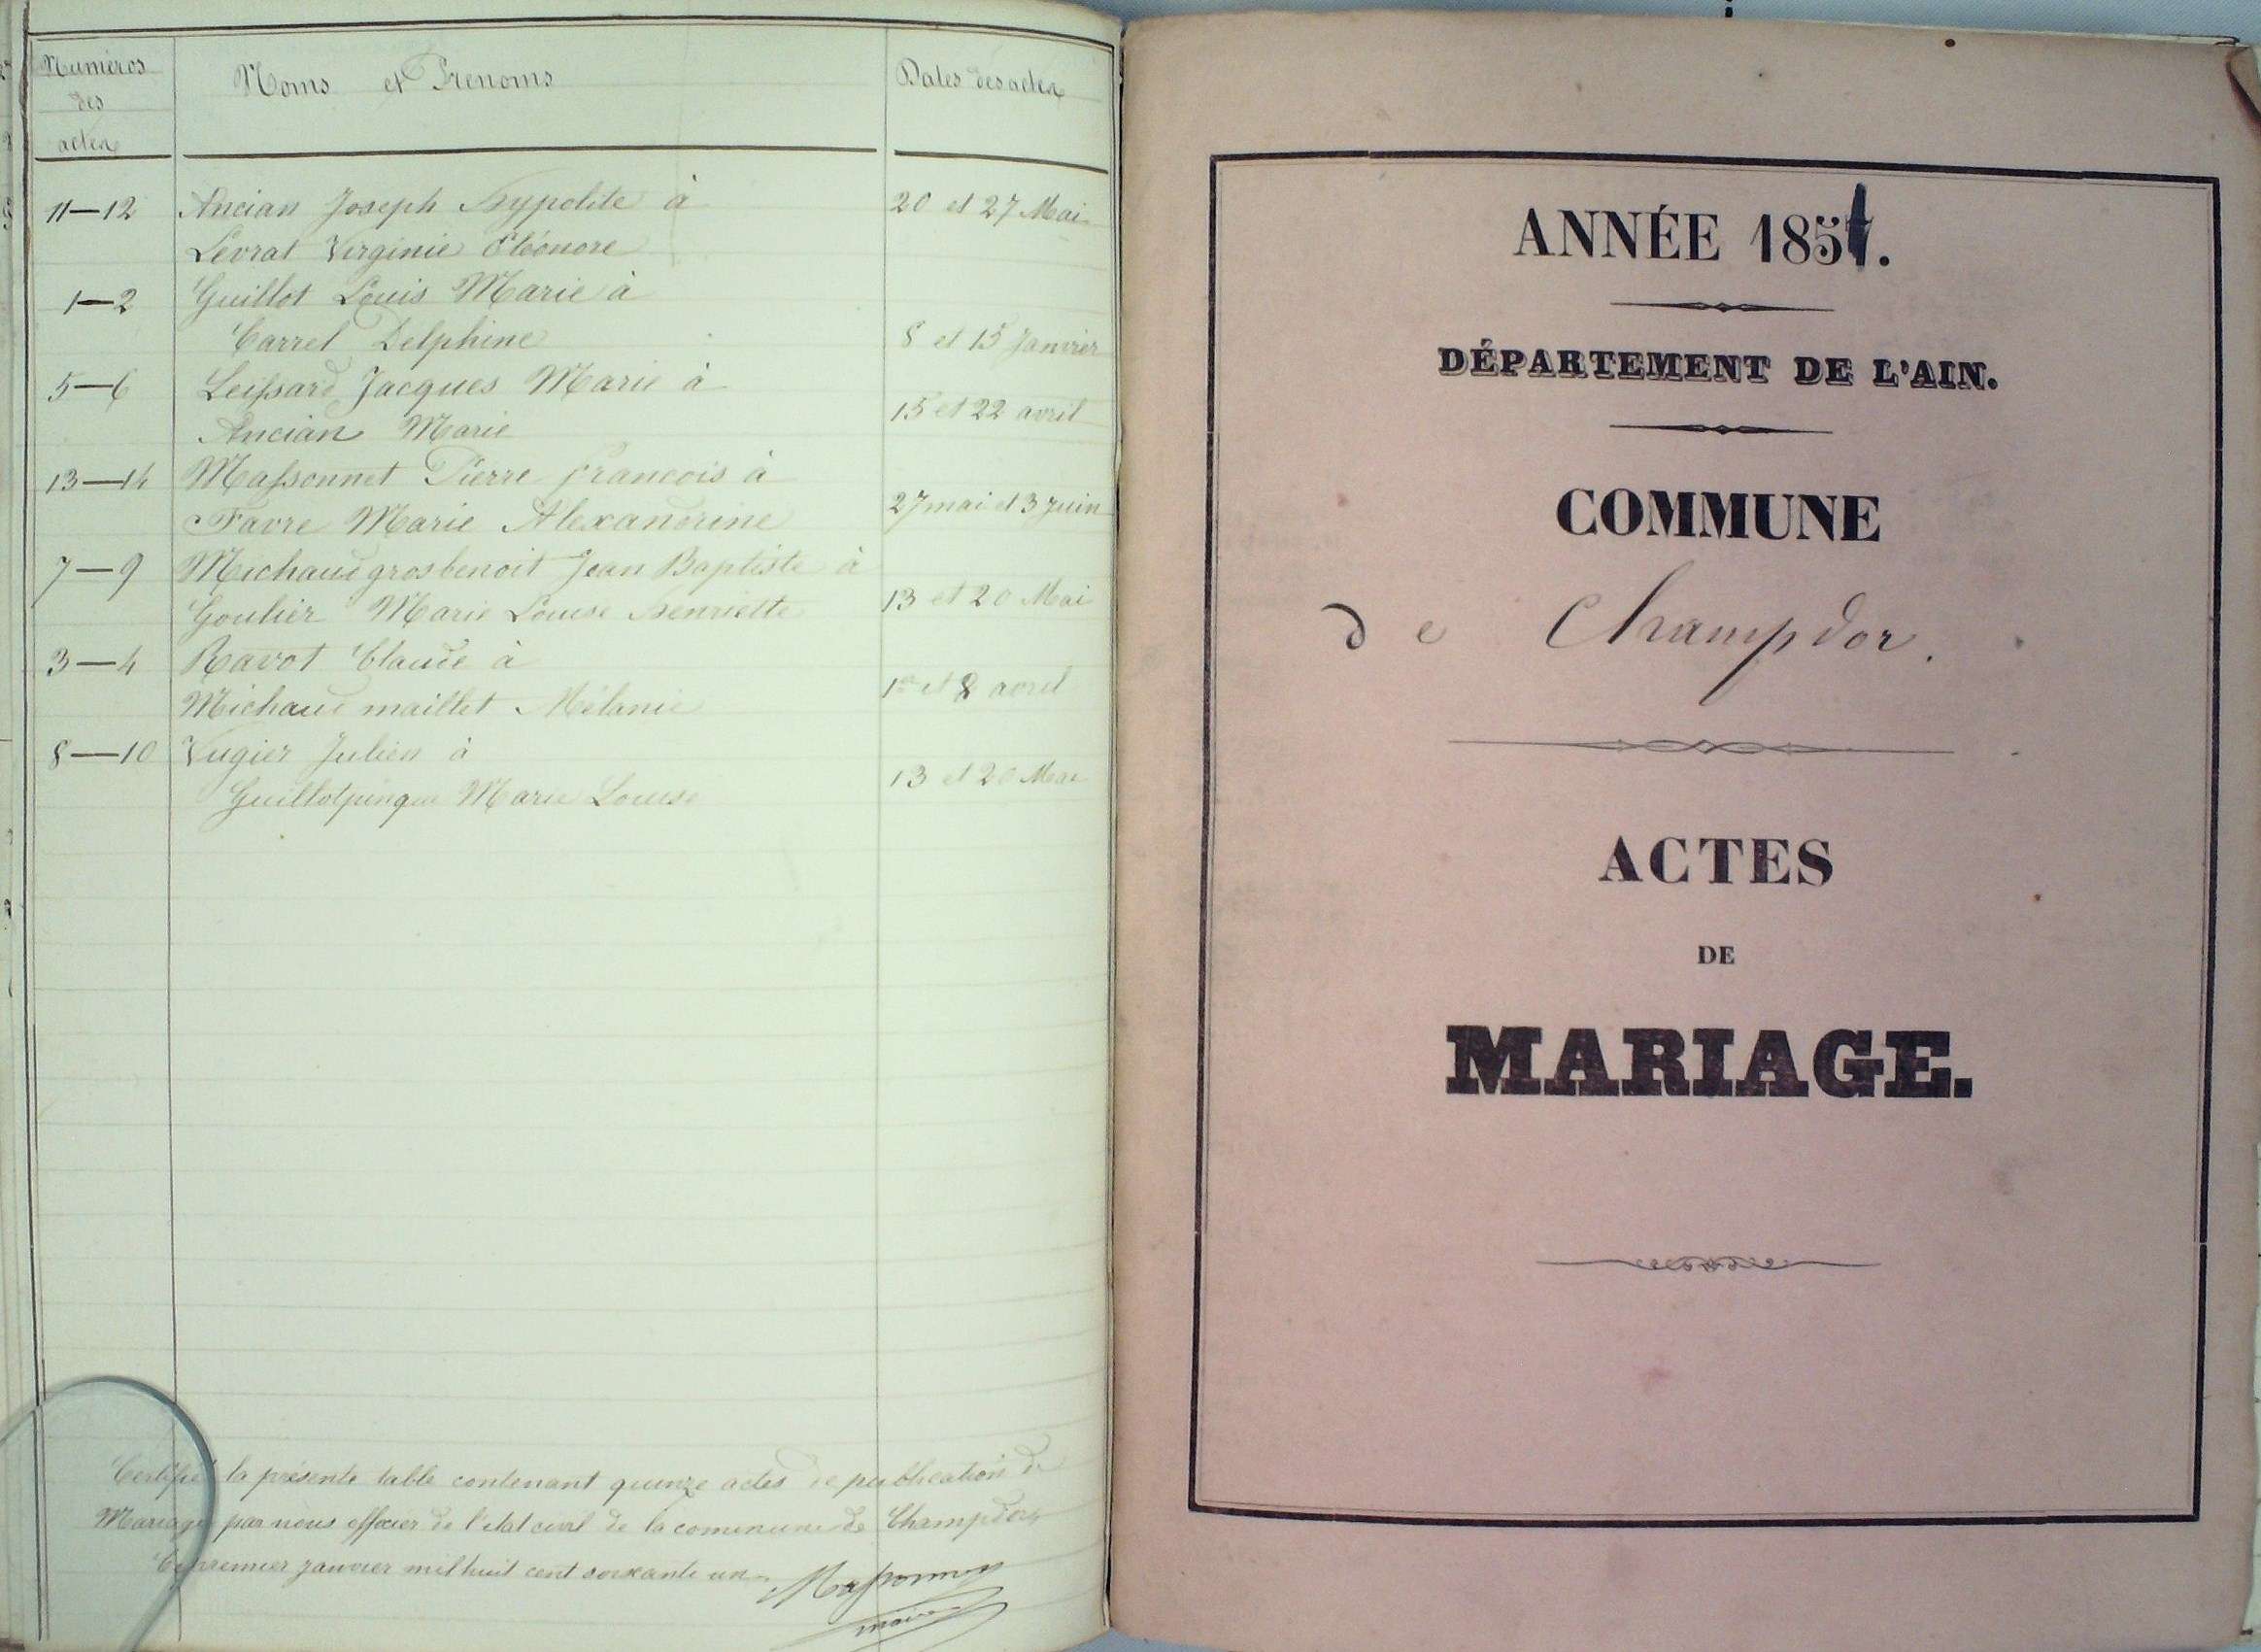 Numéros
des
actes
Noms et Prenoms
Dates des actes
11—12 Ancian Joseph Hypolite à 20 et 27 Mai
Levrat Virginie Eléonore
1—2 Guillot Louis Marie à
Carrel Delphine 8 et 15 Janvier
5—6 Leissard Jacques Marie à
Ancian Marie 15 et 22 avril
13—14 Massonnet Pierre francois à
Favre Marie Alexandrine 27 mai et 3 Juin
7—9 Michaud grosbenoit Jean Baptiste à
Goulier Marie Louise Henriette 13 et 20 Mai
3—4 Ravot Claude à
Michaud maillet Mélanie 1er et 8 avril
8—10 Vugier Julien à
Guillotpingue Marie Louise 13 et 20 Mai
Certifié la présente table contenant quinze actes de publication de
Mariage par nous officier de l'état civil de la commune de Champdor
Ce premier janvier mil huit cent soixante un.
Massonnet
maire
ANNÉE 1857.
DÉPARTEMENT DE L'AIN.
COMMUNE
de Champdor.
ACTES
DE
MARIAGE.